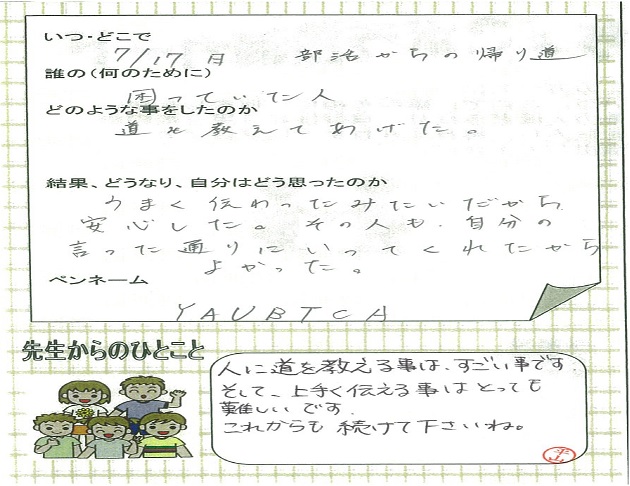 いつ・どこで
7/17 月 部活からの帰り道
誰の(何のために)
困っていた人
どのような事をしたのか
道を教えてあげた。
結果、どうなり、自分はどう思ったのか
うまく伝わったみたいだから
安心した。その人も、自分の
言った通りにいってくれたから
よかった。
ペンネーム
YAUBTCA
先生からのひとこと
人に道を教える事は、すごい事です。
そして、上手く伝える事はとっても
難しいです。
これからも続けて下さいね。